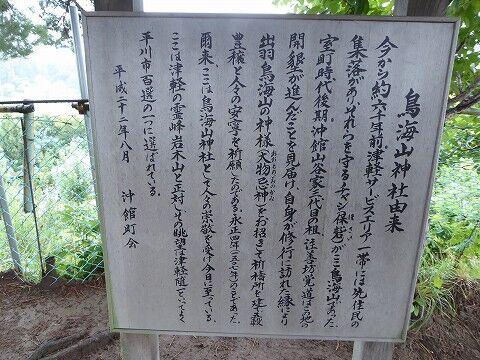 鳥海山神社由来
今から約六千年前、津軽サービスエリア一帯には先住民の
集落がありそれらを守るチャシ(保砦)がここ鳥海山であった。
室町時代後期、沖館山谷家三代目の祖、
開懇が進んだことを見届け、自身が修行に訪れた縁により
出羽鳥海山の神様「大物忌神」をお招きして祈祷所を建て五穀
豊穣と人々の安寧を祈願したのである。永正四年(一五〇七年)のことであった。
爾来、ここは鳥海山神社として人々の崇敬を受け今日に至っている。
ここは津軽の霊峰岩木山と正対し、その眺望は津軽随一といってよく、
平川市百選の一つに選ばれている。
平成二十二年八月 沖館町会